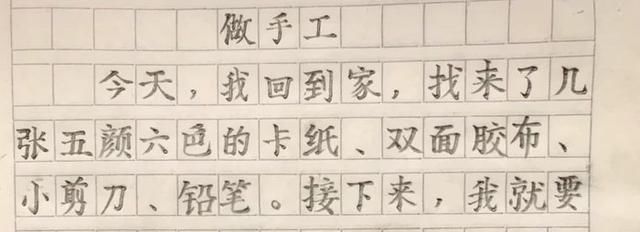 做手工
今天，我回到家，找来了几
张五颜六色的卡纸、双面胶布、
小剪刀、铅笔。接下来，我就要